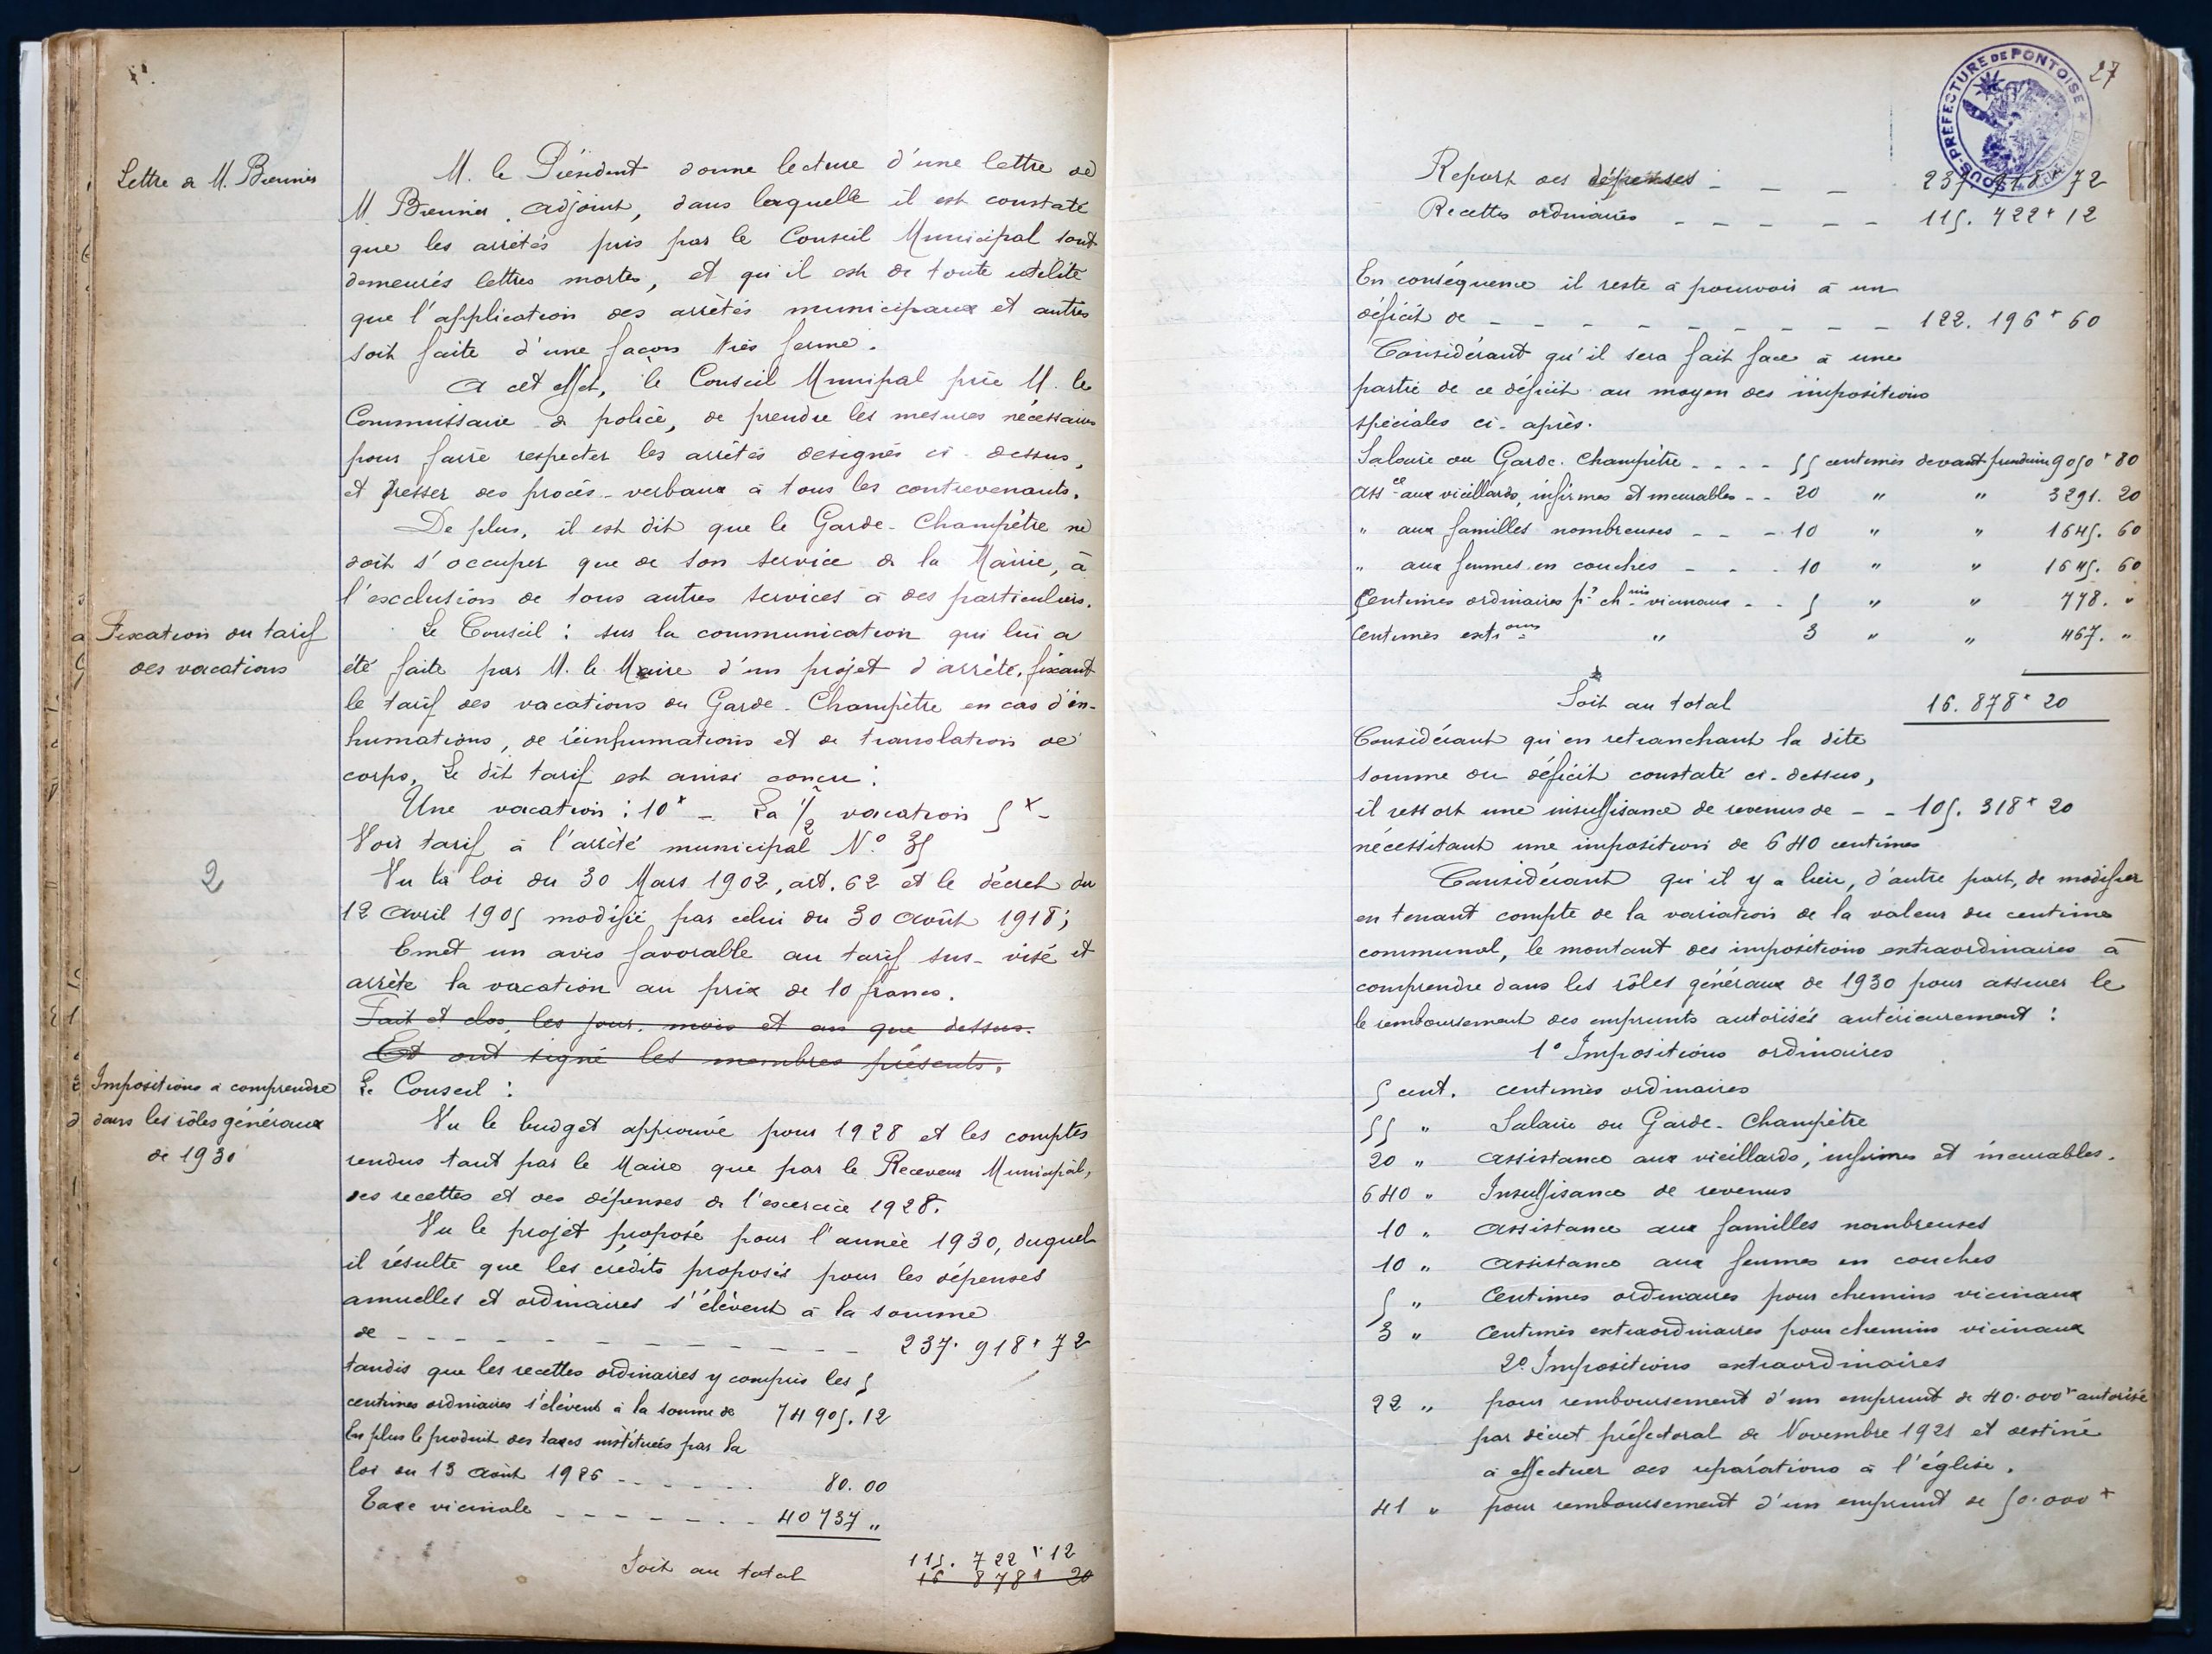 Lettre de M. Brennier
M. le Président donne lecture d'une lettre de
M Brennier, adjoint, dans laquelle il est constaté
que les arrêtés pris par le Conseil Municipal sont
demeurés lettres mortes, et qu'il est de toute utilité
que l'application des arrêtés municipaux et autres
soit faite d'une façon très ferme.
A cet effet, le Conseil Munipal prie M. le
Commissaire de police, de prendre les mesures nécessaires
pour faire respecter les arrêtés désignés ci-dessus,
et dresser des procès-verbaux à tous les contrevenants.
De plus, il est dit que le Garde-Champêtre ne
doit s'occuper que de son service de la Mairie, à
l'exclusion de tous autres services à des particuliers.
Fixation du tarif
des vacations
Le Conseil : sur la communication qui lui a
été faite par M. le Maire d'un projet d'arrêté, fixant
le tarif des vacations du Garde-Champêtre en cas d'in-
humations, de réinhumations et de translation de
corps, Le dit tarif est ainsi concu :
Une vacation : 10 f - La 1/2 vacation 5 f -
Voir tarif à l'arrêté municipal N° 35
2
Vu la loi du 30 Mars 1902, art. 62 et le décret du
12 Avril 1905 modifié par celui du 30 Août 1918;
Emet un avis favorable au tarif sus-visé et
arrête la vacation au prix de 10 francs.
Fait et clos, les jour, mois et an que dessus.
Et ont signé les membres présents.
Impositions à comprendre
dans les rôles généraux
de 1930
Le Conseil :
Vu le budget approuvé pour 1928 et les comptes
rendus tant par le Maire que par le Receveur Municipal,
des recettes et des dépenses de l'exercice 1928.
Vu le projet proposé pour l'année 1930, duquel
il résulte que les crédits proposés pour les dépenses
annuelles et ordinaires s'élèvent à la somme
de - - - - - - - - - - 237. 918 f 72
tandis que les recettes ordinaires y compris les 5
centimes ordinaires s'élèvent à la somme de 74 905. 12
En plus le produit des taxes instituées par la
loi du 13 Août 1926 - - - - - - 80. 00
Taxe vicinale - - - - - - - 40 737 "
Soit au total 115. 722 f 12
16 878 f 20
27
SOUS-PRÉFECTURE DE PONTOISE
Report des dépenses - - - - 237. 918 f 72
Recettes ordinaires - - - - - - 115. 722 f 12
En conséquence il reste à pourvoir à un
déficit de - - - - - - - - - 122. 196 f 60
Considérant qu'il sera fait face à une
partie de ce déficit au moyen des impositions
spéciales ci-après.
Salaire du Garde-Champêtre - - - - 55 centimes devant produire 9050 f 80
Assce aux vieillards, infirmes et incurables - - 20 " " 3291. 20
" aux familles nombreuses - - - 10 " " 1645. 60
" aux femmes en couches - - - 10 " " 1645. 60
Centimes ordinaires pr chmins vicinaux - - 5 " " 778. "
Centimes extraores " 3 " " 467. "
Soit au total 16. 878 f 20
Considérant qu'en retranchant la dite
somme du déficit constaté ci-dessus,
il ressort une insuffisance de revenus de - - 105. 318 f 20
nécessitant une imposition de 640 centimes
Considérant qu'il y a lieu, d'autre part, de modifier
en tenant compte de la variation de la valeur du centime
communal, le montant des impositions extraordinaires à
comprendre dans les rôles généraux de 1930 pour assurer le
le remboursement des emprunts autorisés antérieurement :
1° Impositions ordinaires
5 cent. centimes ordinaires
55 " Salaire du Garde-Champêtre
20 " Assistance aux vieillards, infirmes et incurables.
640 " Insuffisance de revenus
10 " Assistance aux familles nombreuses
10 " Assistance aux femmes en couches
5 " Centimes ordinaires pour chemins vicinaux
3 " Centimes extraordinaires pour chemins vicinaux
2° Impositions extraordinaires
22 " pour remboursement d'un emprunt de 40.000 f autorisé
par décret préfectoral de Novembre 1921 et destiné
à effectuer des réparations à l'église.
41 " pour remboursement d'un emprunt de 50.000 f